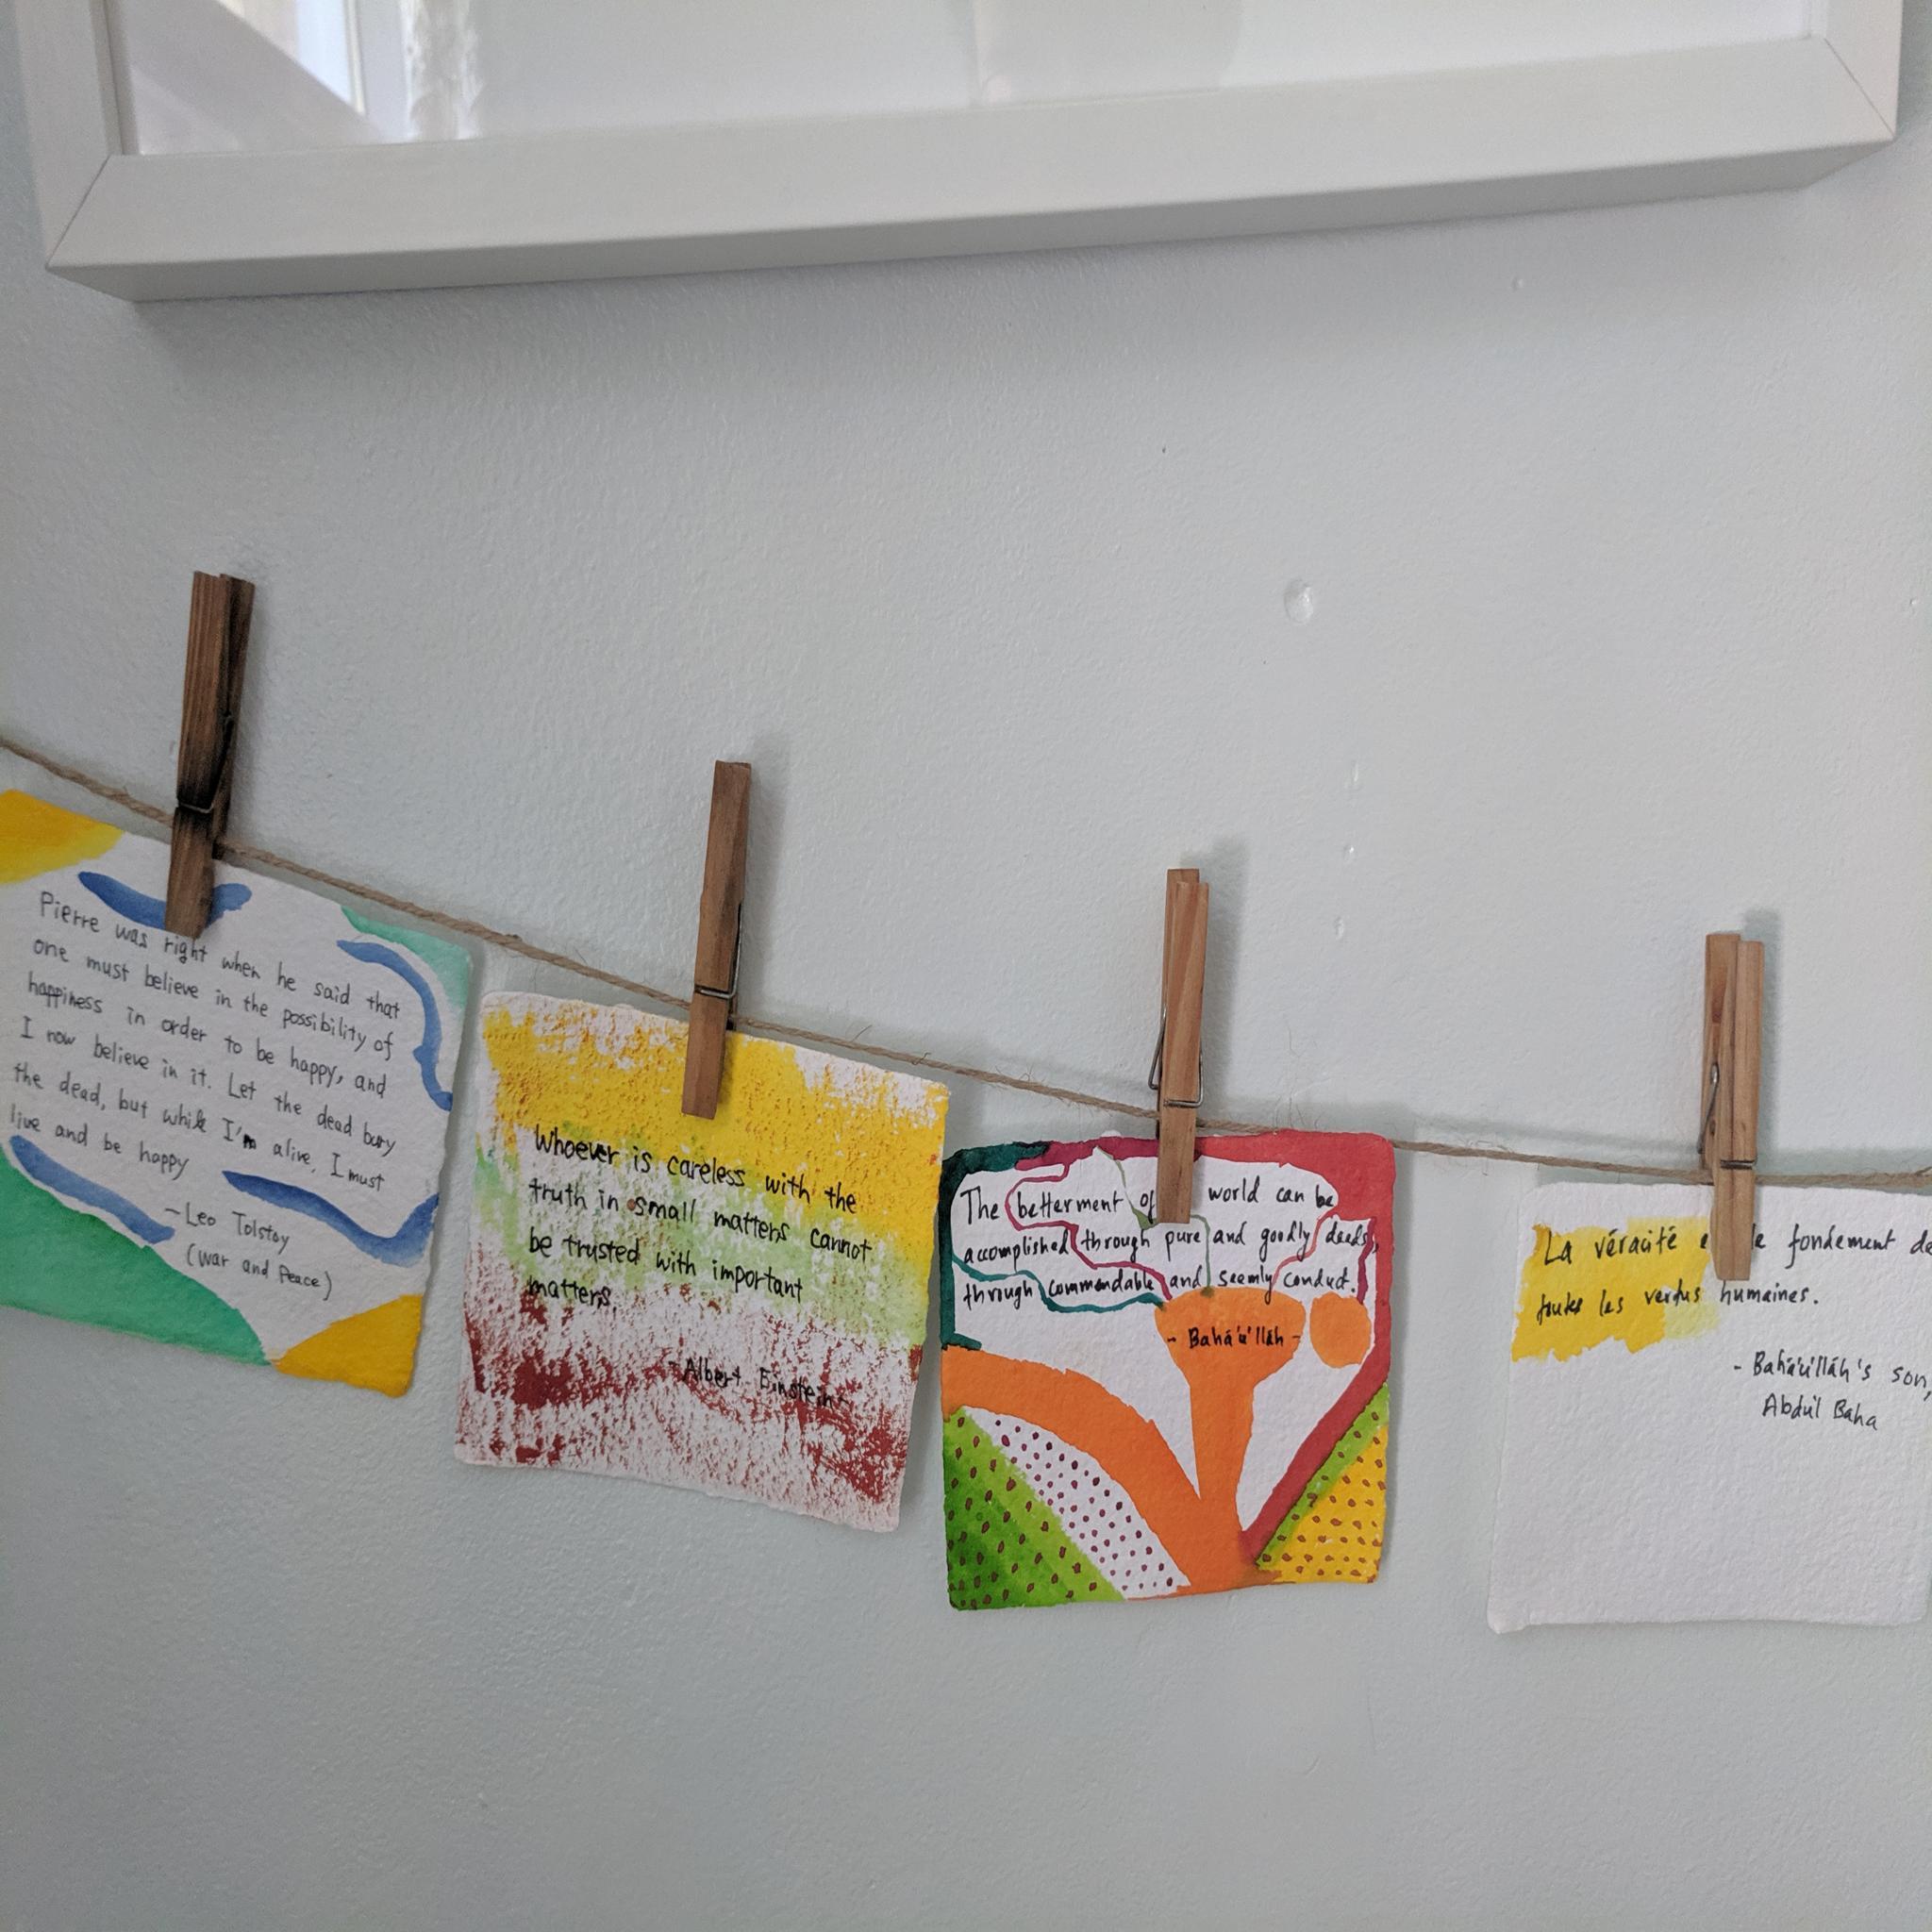 Pierre was right when he said that
one must believe in the possibility of
happiness in order to be happy, and
I now believe in it. Let the dead bury
the dead, but while I'm alive, I must
live and be happy
-Leo Tolstoy
(War and Peace)
Whoever is careless with the
truth in small matters cannot
be trusted with important
matters.
- Albert Einstein -
The betterment of world can be
accomplished through pure and goodly deeds,
through commendable and seemly conduct.
- Bahá'u'lláh -
La véracité fondement de
toutes les vertus humaines.
- Bahá'u'lláh's son,
Abdu'l Baha